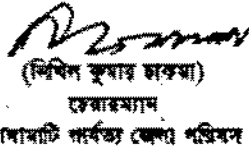 (নিখিল কুমার চাকমা)
চেয়ারম্যান
পার্বত্য জেলা পরিষদ